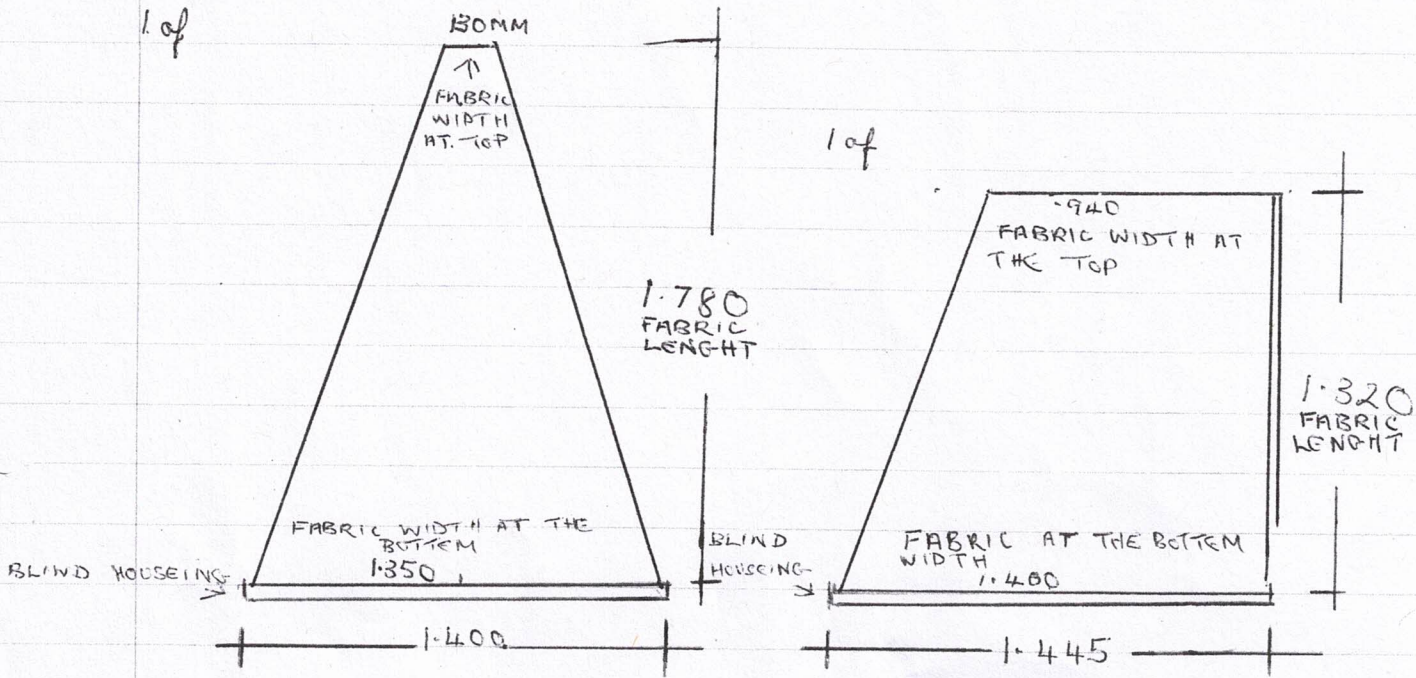 1 of
130MM
FABRIC
WIDTH
AT. TOP
1.780
FABRIC
LENGHT
FABRIC WIDTH AT THE
BOTTEM
1.350
BLIND HOUSEING
1.400
1 of
.940
FABRIC WIDTH AT
THE TOP
1.320
FABRIC
LENGHT
BLIND
HOUSEING
FABRIC AT THE BOTTEM
WIDTH
1.400
1.445